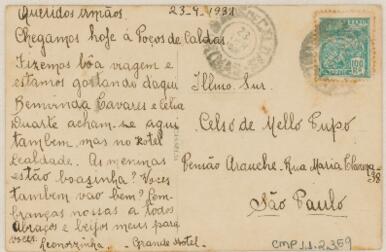 Queridos irmãos. 23-4-1931
Chegamos hoje á Poços de Caldas.
Fizemos bôa viagem e
estamos gostando d'aqui
Bemvinda Tavares e Celia
Duarte acham-se aqui
tambem mas no Hotel
Lealdade. As meninas
estão boazinha? Voces
tambem vão bem? Lem-
branças nossas a todos
abraços e beijos meus para
voces. Leonorzinha - Grande Hotel.
Illmo. Snr.
Celso de Mello Pupo
Pensão Arauche. Rua Maria Thereza
38
São Paulo
CMP.1.1.2.359
BRASIL
100
RS